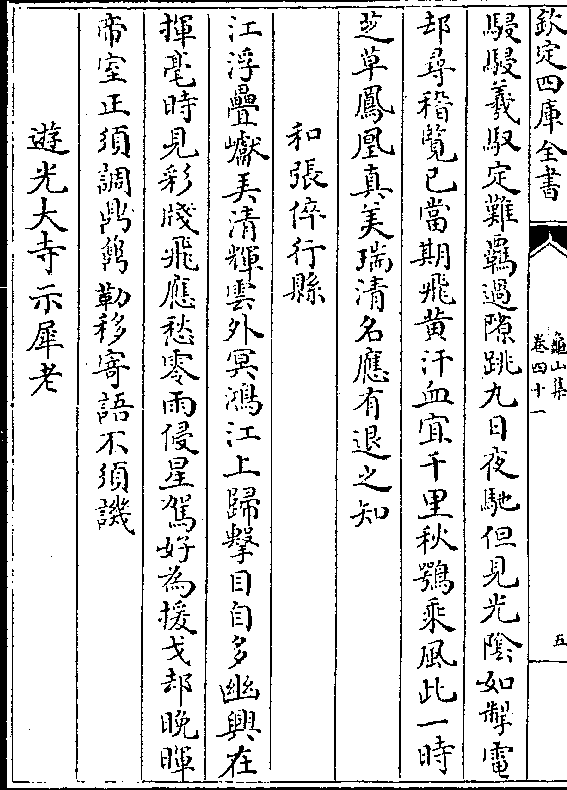 欽定四庫全書
龜山集
卷四十一
五
駸駸羲馭定難羈過隙跳丸日夜馳但見光陰如掣電
却尋稽覽已當期飛黄汗血宜千里秋鶚乘風此一時
芝草鳳凰真美瑞清名應有退之知
和張倅行縣
江浮疊巘美清輝雲外冥鴻江上歸擊目自多幽興在
揮毫時見彩牋飛應愁零雨侵星駕好為援戈却晚暉
帝室正須調鼎鶴勒移寄語不須譏
遊光大寺示犀老